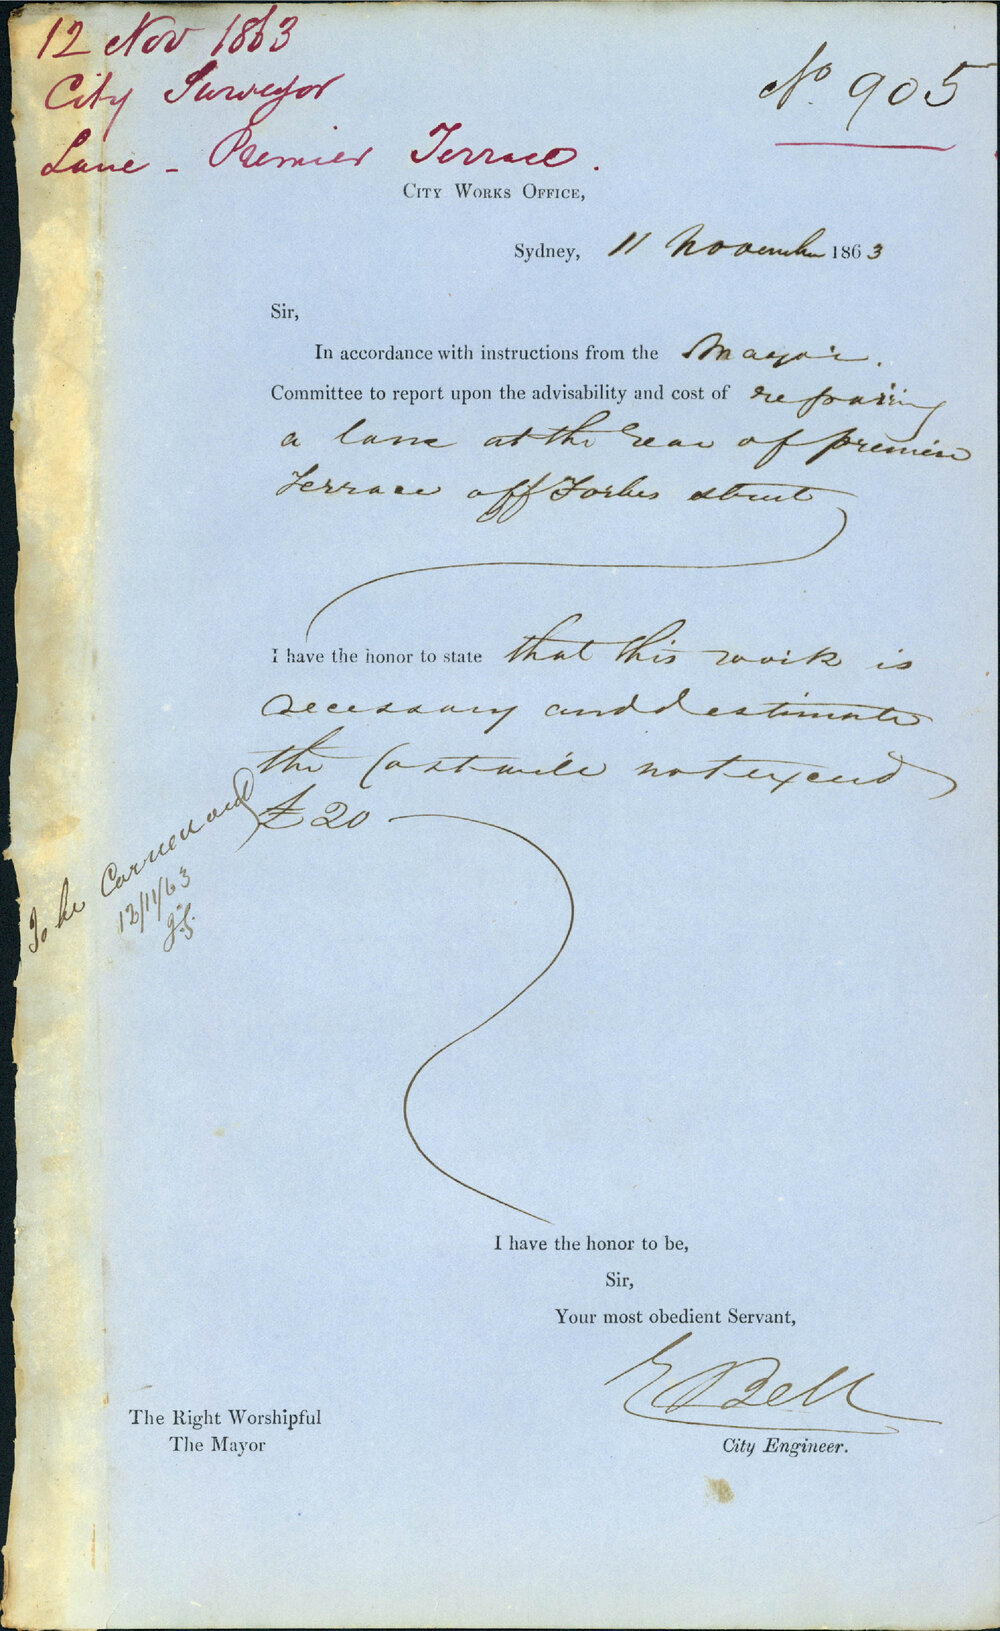 12 Nov 1863
City Surveyor
Lane - Premier Terrace.
No. 905
City Works Office,
Sydney, 11 November 1863
Sir,
In accordance with instructions from the Mayor.
Committee to report upon the advisability and cost of repairing
a lane at the rear of premier
Terrace off Forbes street
I have the honor to state that this work is
necessary and estimate
the Cost will not exceed
£20
To be Carried out
12/11/63
I have the honor to be,
Sir,
Your most obedient Servant,
E Bell
City Engineer.
The Right Worshipful
The Mayor